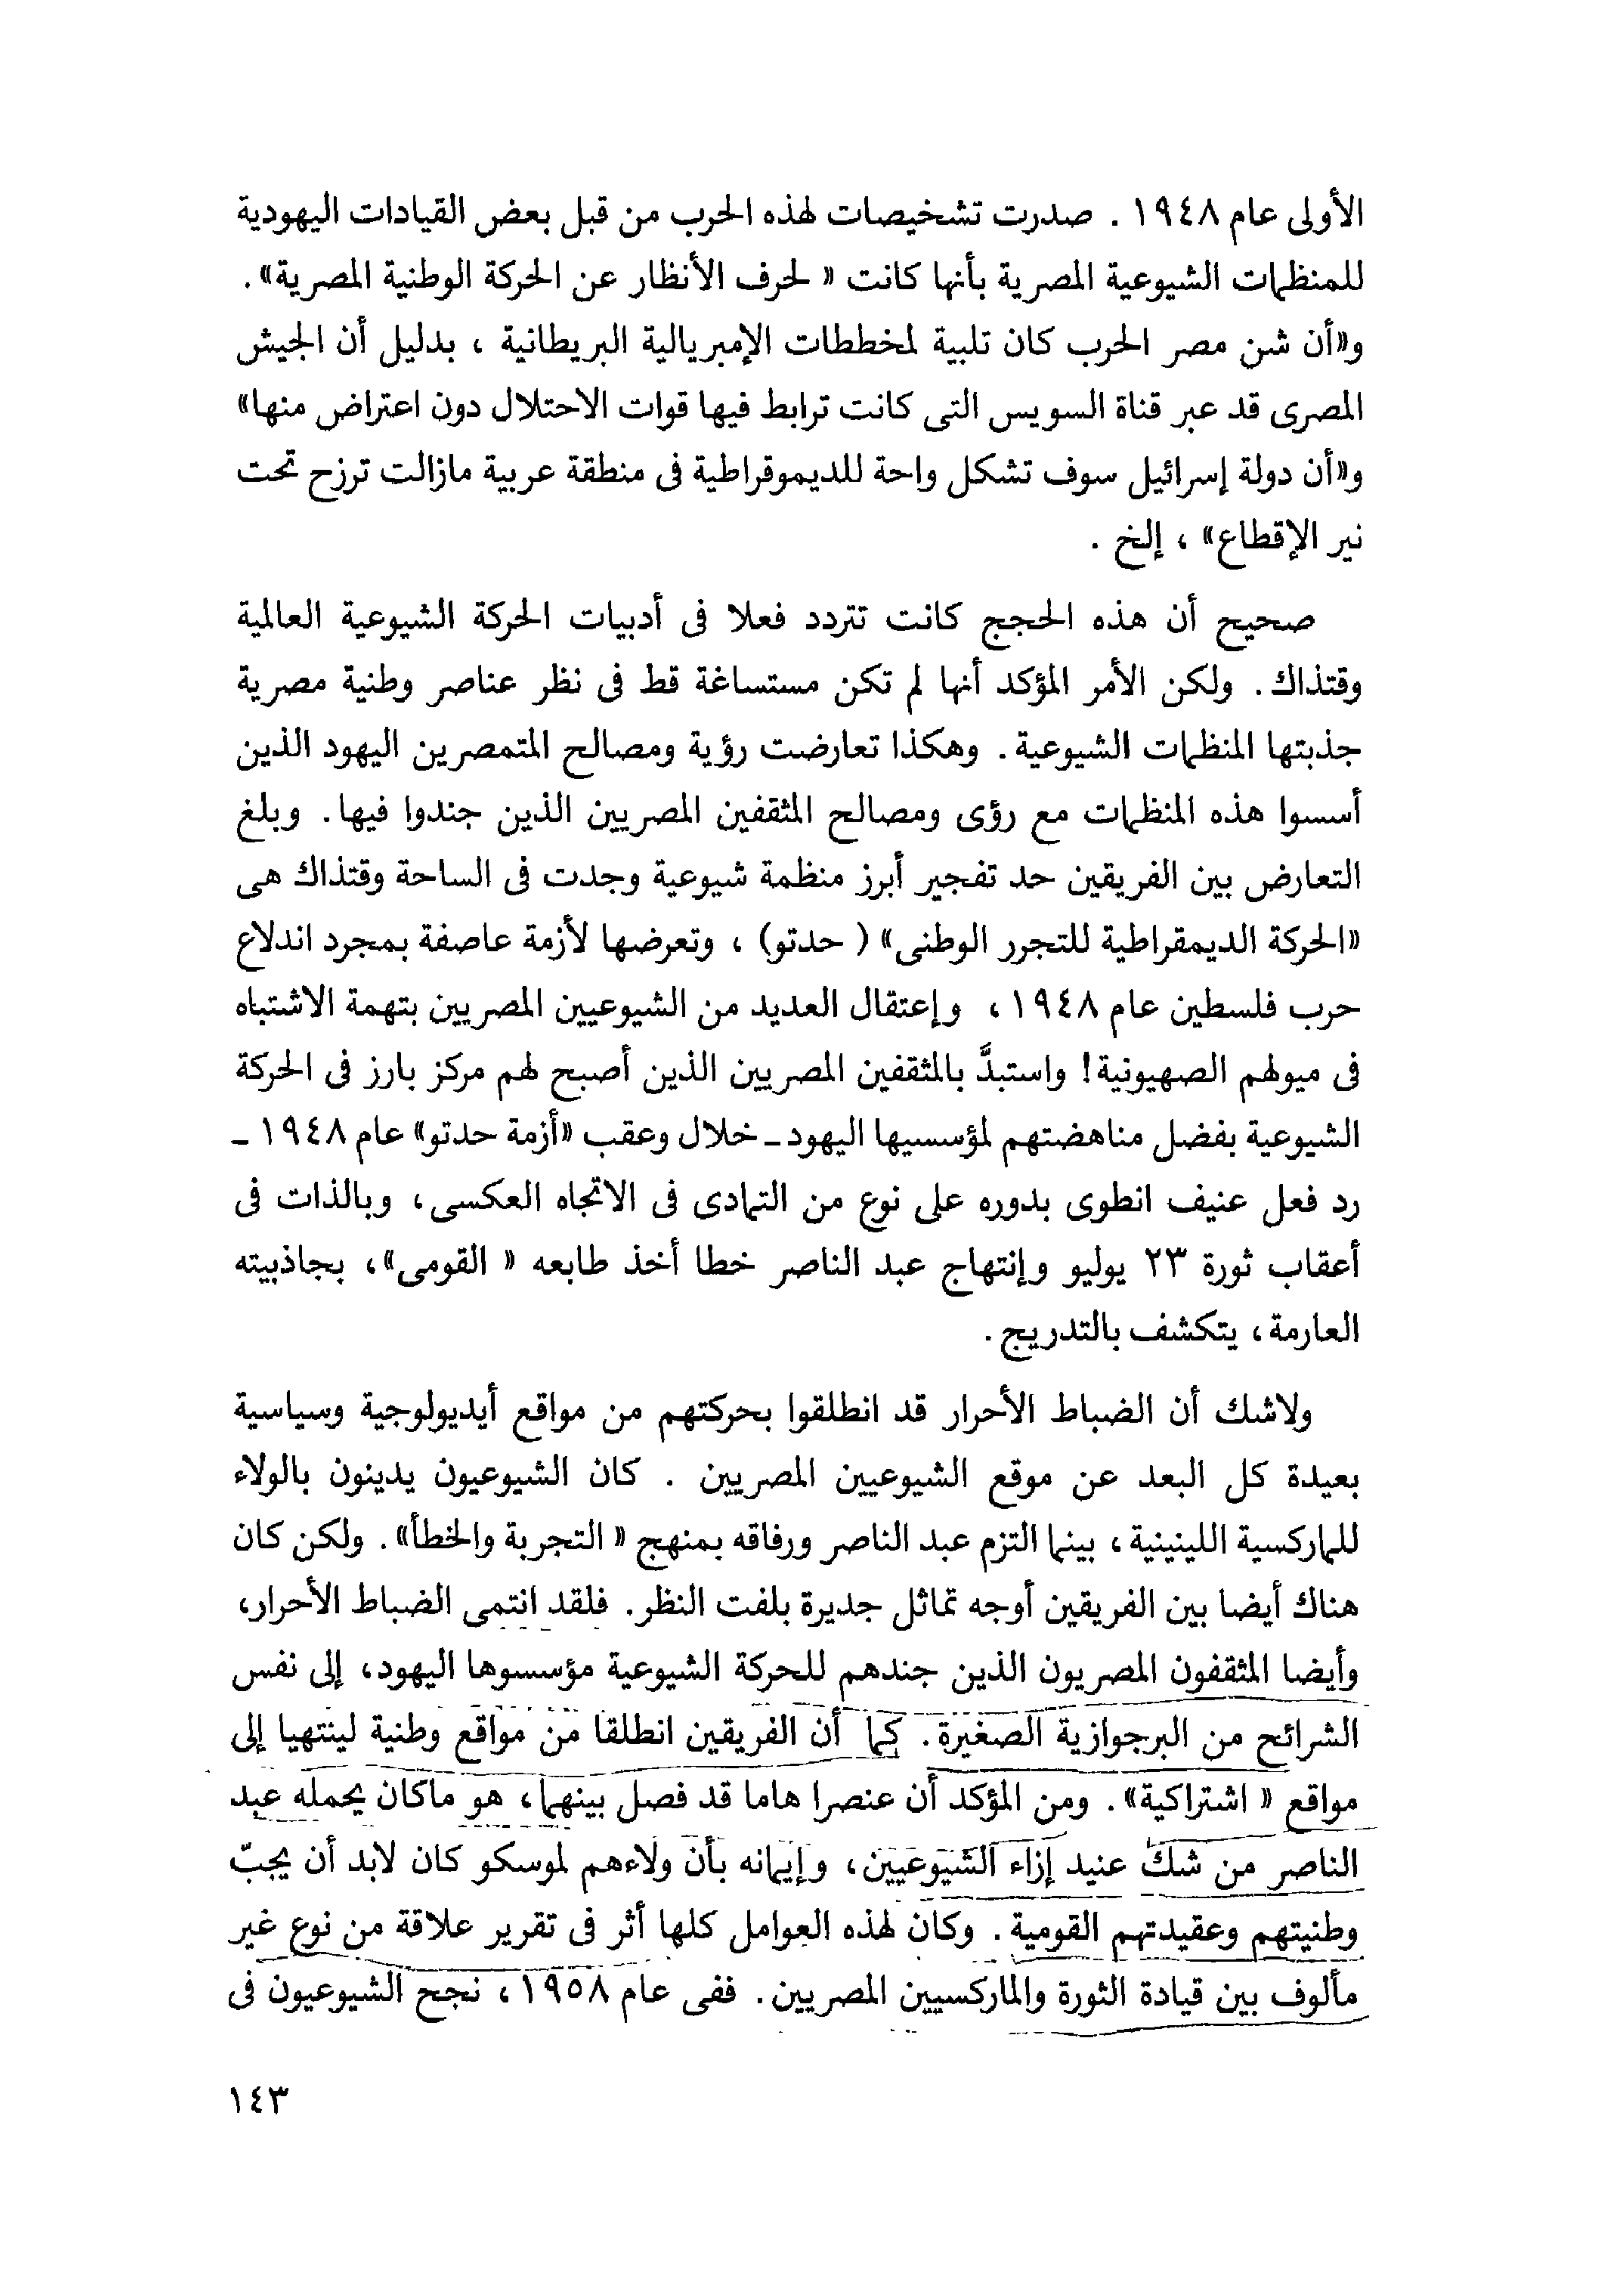 الأولى عام ١٩٤٨ . صدرت تشخيصات لهذه الحرب من قبل بعض القيادات اليهودية
للمنظمات الشيوعية المصرية بأنها كانت « لحرف الأنظار عن الحركة الوطنية المصرية» .
و«أن شن مصر الحرب كان تلبية لمخططات الإمبريالية البريطانية ، بدليل أن الجيش
المصرى قد عبر قناة السويس التى كانت ترابط فيها قوات الاحتلال دون اعتراض منها»
و«أن دولة إسرائيل سوف تشكل واحة للديموقراطية فى منطقة عربية مازالت ترزح تحت
نير الإقطاع» ، إلخ .
صحيح أن هذه الحجج كانت تتردد فعلا فى أدبيات الحركة الشيوعية العالمية
وقتذاك . ولكن الأمر المؤكد أنها لم تكن مستساغة قط فى نظر عناصر وطنية مصرية
جذبتها المنظمات الشيوعية . وهكذا تعارضت رؤية ومصالح المتمصرين اليهود الذين
أسسوا هذه المنظمات مع رؤى ومصالح المثقفين المصريين الذين جندوا فيها . وبلغ
التعارض بين الفريقين حد تفجير أبرز منظمة شيوعية وجدت فى الساحة وقتذاك هى
«الحركة الديمقراطية للتجرر الوطنى» ( حدتو) ، وتعرضها لأزمة عاصفة بمجرد اندلاع
حرب فلسطين عام ١٩٤٨ ، وإعتقال العديد من الشيوعيين المصريين بتهمة الاشتباه
فى ميولهم الصهيونية! واستبدَّ بالمثقفين المصريين الذين أصبح لهم مركز بارز فى الحركة
الشيوعية بفضل مناهضتهم لمؤسسيها اليهود ـ خلال وعقب «أزمة حدتو» عام ١٩٤٨ ـ
رد فعل عنيف انطوى بدوره على نوع من التمادى فى الاتجاه العكسى ، وبالذات فى
أعقاب ثورة ٢٣ يوليو وإنتهاج عبد الناصر خطا أخذ طابعه « القومى» ، بجاذبيته
العارمة ، يتكشف بالتدريج .
ولاشك أن الضباط الأحرار قد انطلقوا بحركتهم من مواقع أيديولوجية وسياسية
بعيدة كل البعد عن موقع الشيوعيين المصريين . كان الشيوعيون يدينون بالولاء
للماركسية اللينينية ، بينما التزم عبد الناصر ورفاقه بمنهج « التجربة والخطأ» . ولكن كان
هناك أيضا بين الفريقين أوجه تماثل جديرة بلفت النظر . فلقد انتمى الضباط الأحرار،
وأيضا المثقفون المصريون الذين جندهم للحركة الشيوعية مؤسسوها اليهود، إلى نفس
الشرائح من البرجوازية الصغيرة . كما أن الفريقين انطلقا من مواقع وطنية لينتهيا إلى
مواقع « اشتراكية» . ومن المؤكد أن عنصرا هاما قد فصل بينهما ، هو ماكان يحمله عبد
الناصر من شك عنيد إزاء الشيوعيين ، وإيمانه بأن ولاءهم لموسكو كان لابد أن يجبّ
وطنيتهم وعقيدتهم القومية . وكان لهذه العوامل كلها أثر فى تقرير علاقة من نوع غير
مألوف بين قيادة الثورة والماركسيين المصريين . ففى عام ١٩٥٨ ، نجح الشيوعيون فى
١٤٣